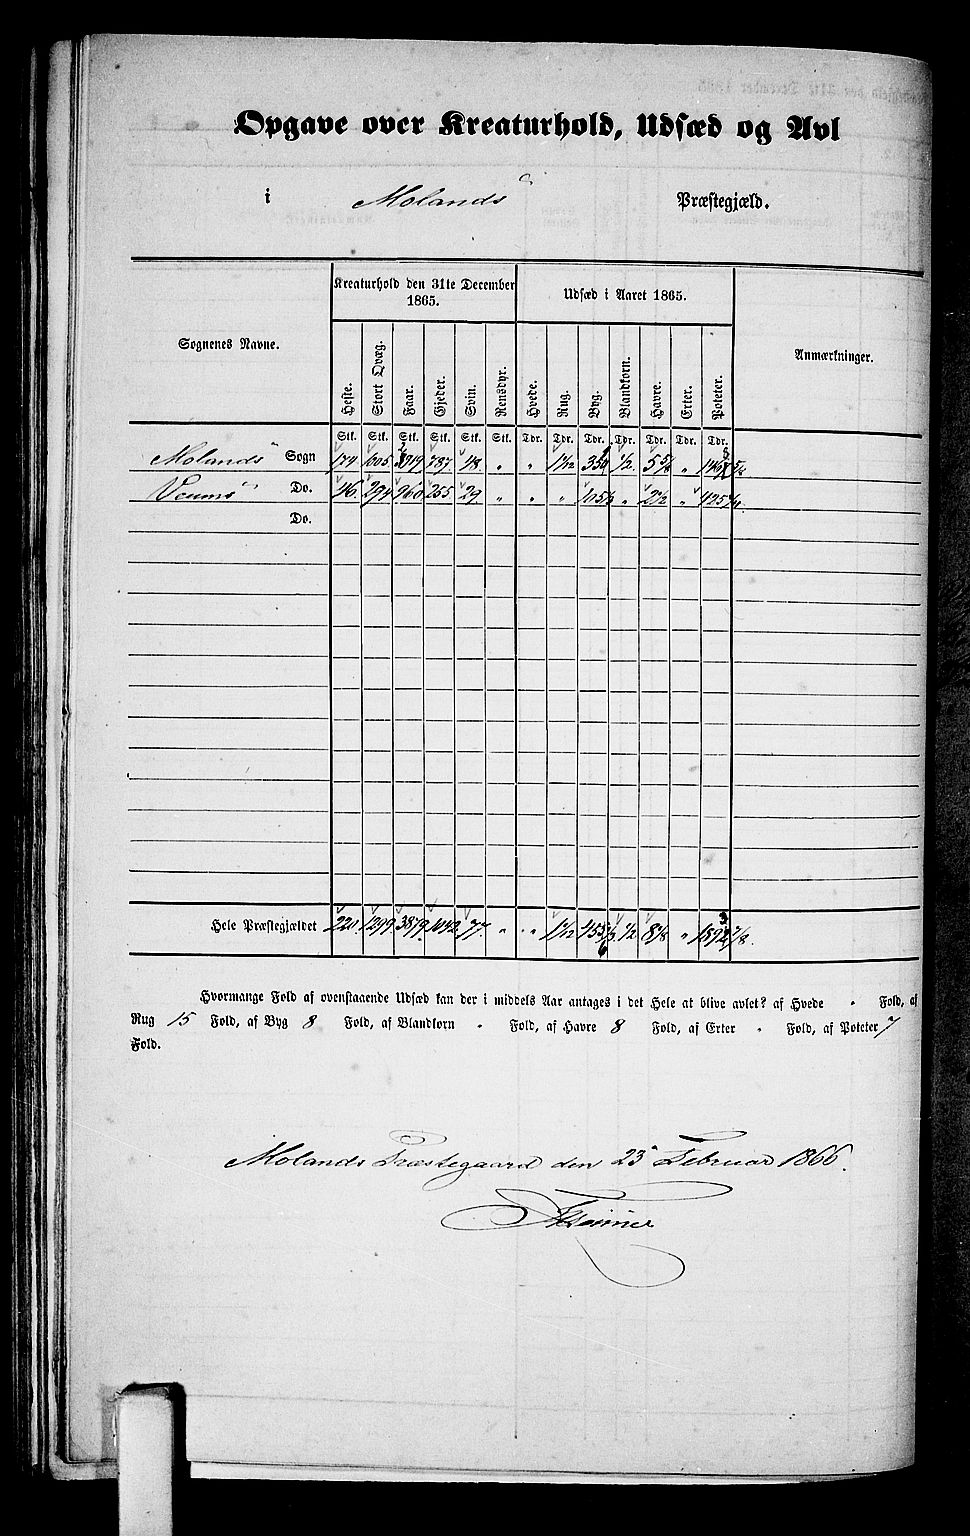 Opgave over Kreaturhold, Udsæd og Avl
i Molands Præstegjæld.
Sognenes Navne.
Kreaturhold den 31te December 1865.
Udsæd i Aaret 1865.
Anmærkninger.
Heste. Stort Qvæg. Faar. Gjeder. Svin. Rensdyr. Hvede. Rug. Byg. Blandkorn. Havre. Erter. Poteter.
Stk. Stk. Stk. Stk. Stk. Stk. Tdr. Tdr. Tdr. Tdr. Tdr. Tdr. Tdr.
Molands Sogn 174 1005. 787. 48. " " 1 1/12 1/2. 5 5/8 "
Veums Do. 46. 294 960 255. 29. " " " 105 " 2 1/2 " 425
Do.
Hele Præstegjældet 220. 1299 3879. 1042. 77. " " 1 1/12 1/2 8 1/8 "
Hvormange Fold af ovenstaaende Udsæd kan der i middels Aar antages i det Hele at blive avlet? af Hvede " Fold, af
Rug 15 Fold, af Byg 8 Fold, af Blandkorn " Fold, af Havre 8 Fold, af Erter " Fold, af Poteter 7
Fold.
Molands Præstegaard den 23 Februar 1866.